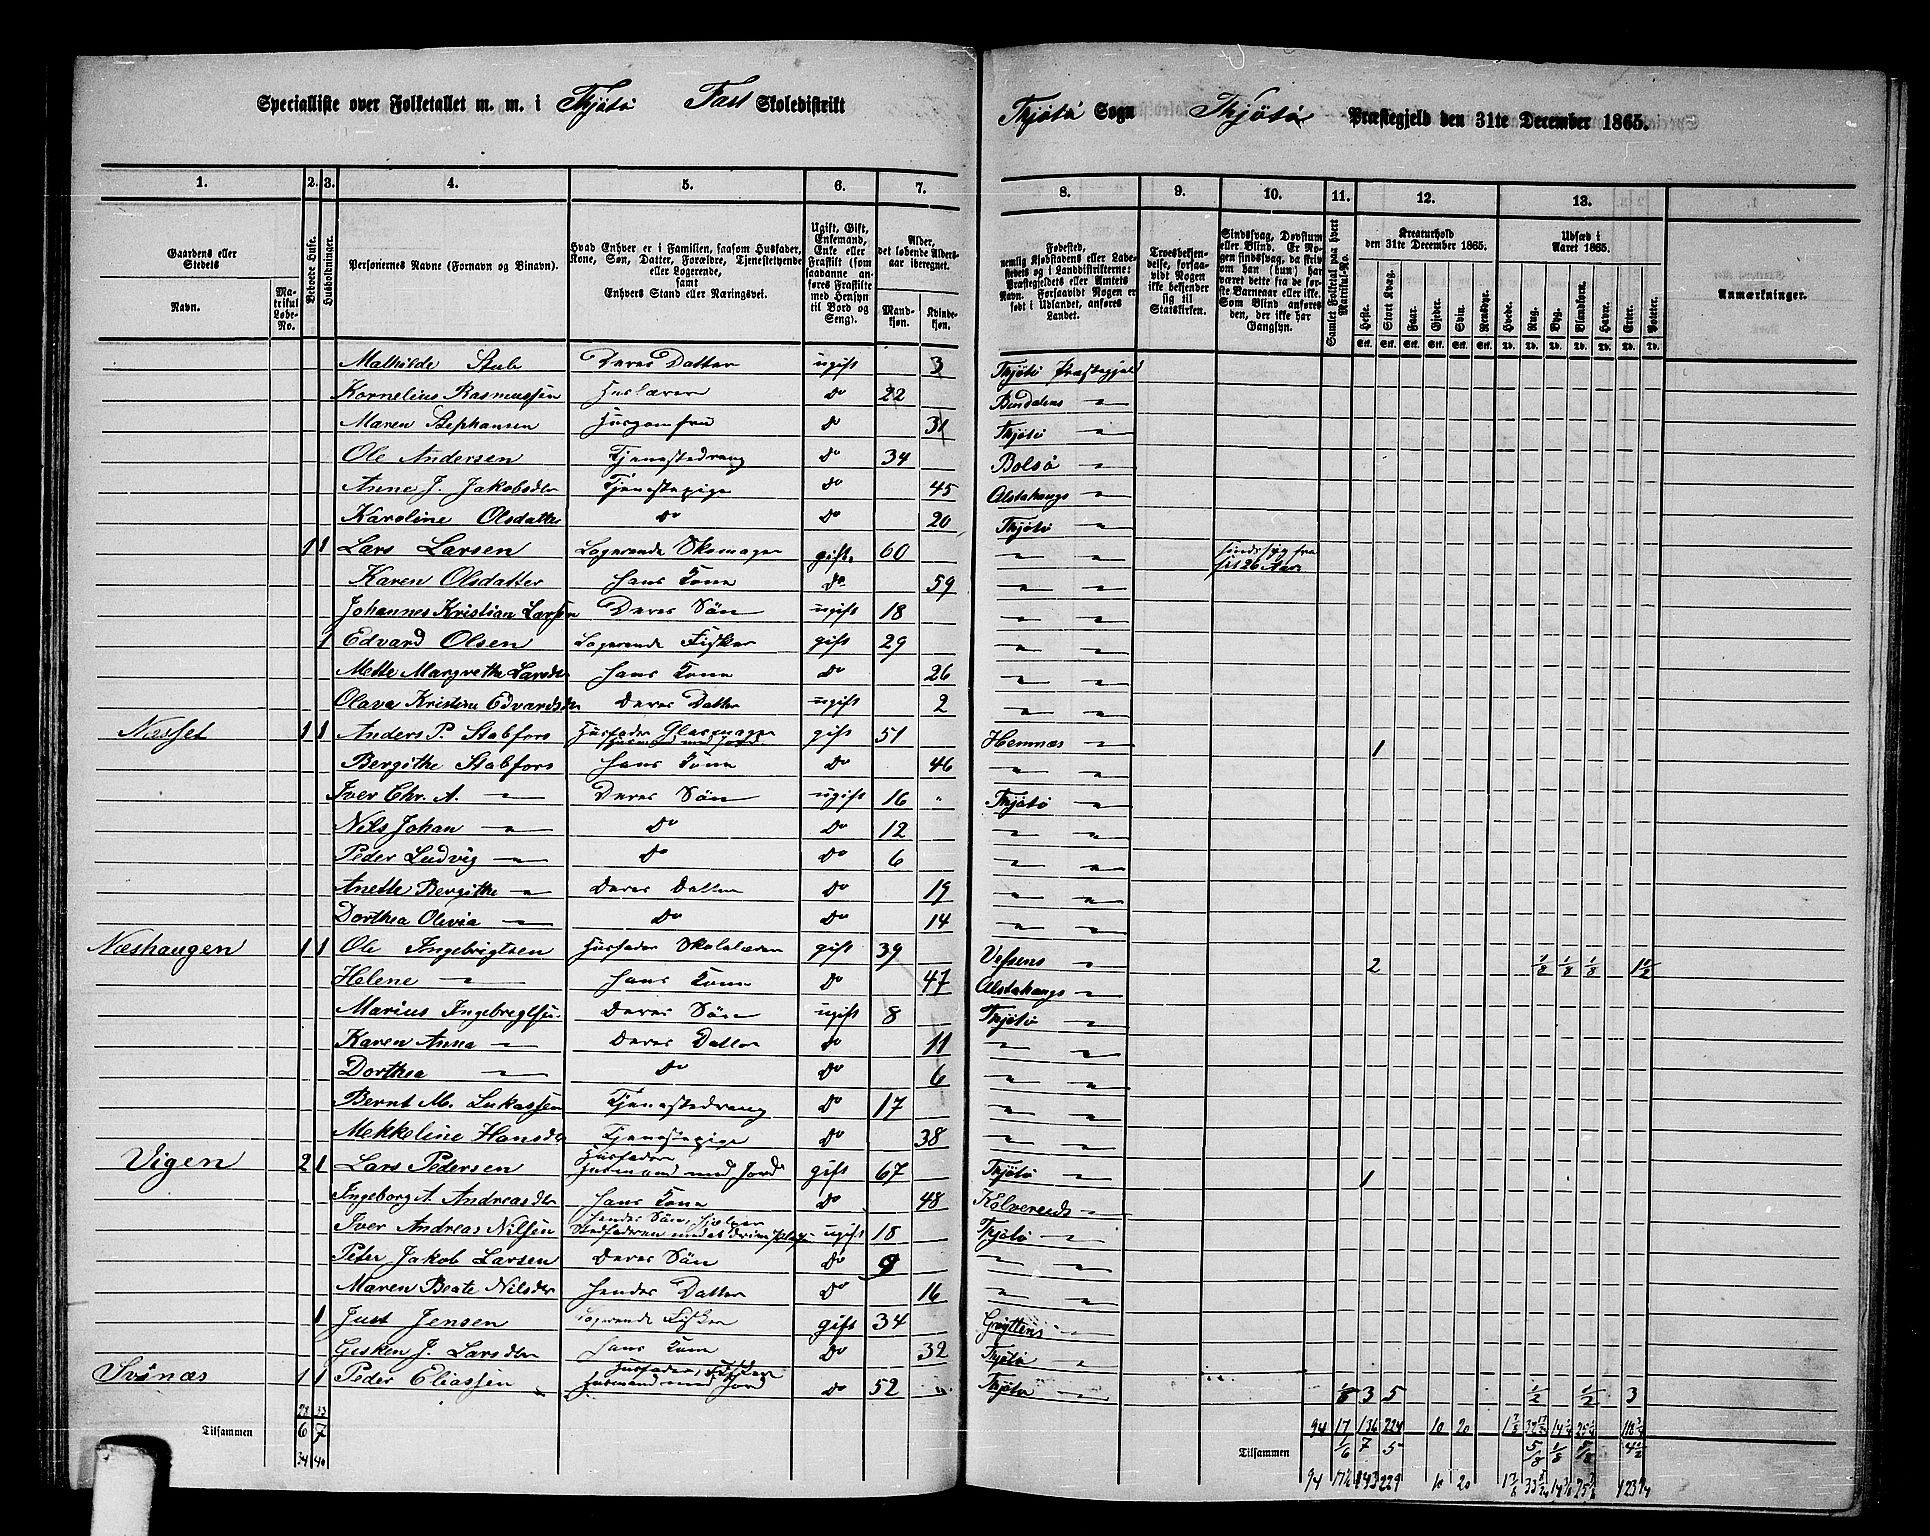 Specialliste over Folketallet m. m. i Thjøtø Fast Skoledistrikt
Thjøtø Sogn Thjøtø Præstegjeld den 31te December 1865.
1. 2. 3. 4. 5. 6. 7. 8. 9. 10. 11. 12. 13.
Gaardens eller Stedets
Navn.
Matrikul Løbe-No.
Beboede Huse.
Husholdninger.
Personernes Navne (Fornavn og Binavn).
Hvad Enhver er i Familien, saasom Husfader, Kone, Søn, Datter, Forældre, Tjenestetyende eller Logerende, samt Enhvers Stand eller Næringsvei.
Ugift, Gift, Enkemand, Enke eller Fraskilt (som saadanne anføres Fraskilte med Hensyn til Bord og Seng).
Alder, det løbende Alders-aar iberegnet.
Mandkjøn. Kvindekjøn.
Fødested,
Troesbekjendelse, forsaavidt Nogen ikke bekjender sig til Statskirken.
Samlet Folketal paa hvert Matrikul-No.
Kreaturhold den 31te December 1865.
Heste. Stort Kvæg. Faar. Gjeder. Svin. Rensdyr.
Udsæd i Aaret 1865.
Hvede. Rug. Byg. Blandkorn. Havre. Erter. Poteter.
Anmærkninger.
Mathilde Stub Deres Datter ugift 3 Thjøtø Præstegjeld
Kornelius Rasmussen Huslærer do 22 Bindalens "
Maren Stephansen Husjomfru do 31 Thjøtø "
Ole Andersen Tjenestedreng do 34 Bolsø "
Anne J. Jakobsdtr Tjenestepige do 45 Alstahaugs "
Karoline Olsdatter do do 20 Thjøtø "
1 1 Lars Larsen Logerende Skomager gift 60 " " sindssyg fra sit 26 Aar
Karen Olsdatter Hans Kone do 59 " "
Johannes Kristian Larsen Deres Søn ugift 18 " "
1 Edvard Olsen Logerende Fisker gift 29 " "
Mette Margrethe Larsdtr Hans Kone do 26 " "
Olava Kristine Edvardsdtr Deres Datter ugift 2 " "
Næsset 1 1 Anders P. Stabfors Husfader Glasmager Husmand med Jord gift 51 Hemnæs " 1
Bergithe Stabfors Hans Kone do 46 " "
Iver Chr. A. " Deres Søn ugift 16 " Thjøtø "
Nils Johan " do do 12 " "
Peder Ludvig " do do 6 " "
Anette Bergithe " Deres Datter do 19 " "
Dorthea Olivia " do do 14 " "
Næshaugen 1 1 Ole Ingebrigtsen Husfader Skolelærer gift 39 Vefsens " 2 1/8 1/8 1/8 1 1/2
Helene " Hans Kone do 47 Alstahaugs "
Marius Ingebrigtsen Deres Søn ugift 8 Thjøtø "
Karen Anna " Deres Datter do 11 " "
Dorthea " do do 6 " "
Bernt M. Lukassen Tjenestedreng do 17 " "
Mekkeline Hansdtr Tjenestepige do 38 " "
Vigen 2 1 Lars Pedersen Husfader Husmand med Jord gift 67 Thjøtø " 1
Ingeborg A. Andreasdtr Hans Kone do 48 "
Iver Andreas Nilsen Hendes Søn, hjelper Stedfaderen ugift 18 Thjøtø "
Peter Jakob Larsen Deres Søn do 9 " "
Maren Beate Nilsdtr Hendes Datter do 16 " "
1 Just Jensen Logerende Fisker gift 34 Gryttens "
Gisken J. Larsdtr Hans Kone do 32 Thjøtø "
Svinæs 1 1 Peder Eliassen Husfader, Fisker Husmand med Jord do 52 " Thjøtø " 3 5 1/2 1/2 3
28 33
Tilsammen 6 7
34 40
94 17 136 224 10 20
Tilsammen 1/6 7 5 5/8 1/8 5/8 4 1/2
94 143 229 10 20